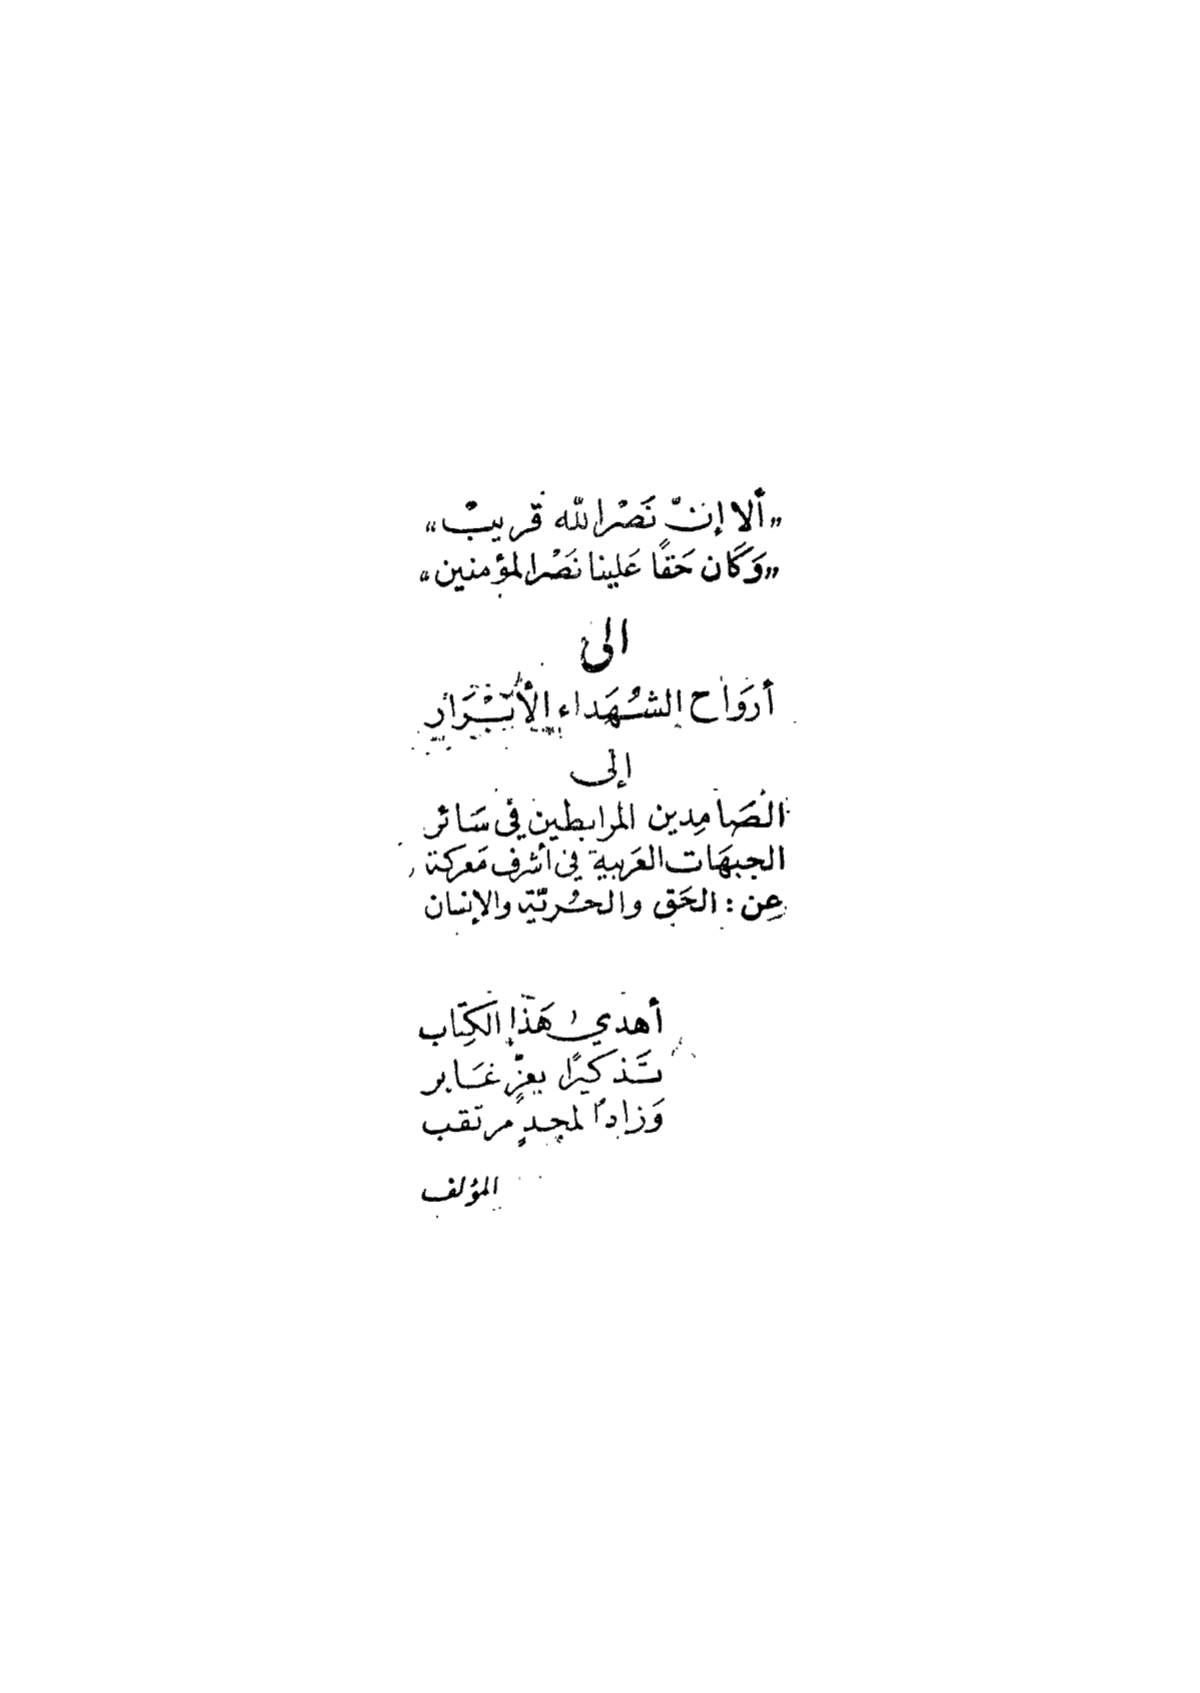 „ألا إنّ نَصْر الله قريبٌ“
„وَكَان حَقًا عَلينا نَصْر المؤمنين“
الى
أروَاح الشهَداء الأبْرَار
إلى
الصَامِدين المرابطين في سَائر
الجبهَات العَربية في أشرف مَعركة
عِن : الحَق والحُريّة والإنسان
أهدي هَذا الكِتاب
تَذكيرًا بعزٍّ غَابر
وَزادًا لمجدٍ مرتقب
المؤلف